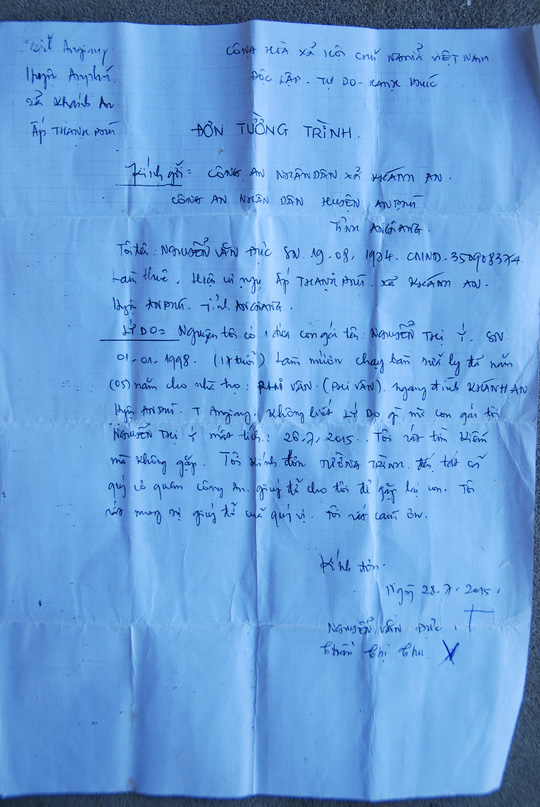 Tỉnh Angiang
CỘNG HOÀ XÃ HỘI CHỦ NGHĨA VIỆT NAM
Huyện Anphú
ĐỘC LẬP - TỰ DO - HẠNH PHÚC
Xã Khánh An
Ấp THẠNH PHÚ
ĐƠN TƯỜNG TRÌNH
Kính gởi: CÔNG AN NHÂN DÂN XÃ KHÁNH AN.
CÔNG AN NHÂN DÂN HUYỆN AN PHÚ
TỈNH ANGIANG.
Tôi tên: NGUYỄN VĂN ĐỨC SN 19.08, 1974. CMND.
Làm thuê. Hiện cư ngụ Ấp THẠNH PHÚ. Xã KHÁNH AN.
Huyện ANPHÚ. Tỉnh ANGIANG.
LÝ DO: Nguyên tôi có 1 đứa con gái tên NGUYỄN THỊ Ý. SN
01-01-1998. (17 tuổi) Làm mướn chạy bàn ly đã năm
(05) năm cho nhà họ: PHI VÂN (Phi Vân). ngang đình KHÁNH AN
Huyện ANPHÚ. T Angiang. Không biết Lý Do gì mà con gái tôi
NGUYỄN THỊ Ý mất tích: 26.7, 2015. Tôi rất tìm kiếm
mà không gặp. Tôi kính đơn TƯỜNG TRÌNH. đến tất cả
quý cơ quan công An. giúp đỡ cho tôi để gặp lại con. Tôi
rất mong sự giúp đỡ của quý vị. Tôi rất cám ơn.
Kính đơn.
Ngày 28.7, 2015.
NGUYỄN VĂN ĐỨC. T
Trần Thị Thu. X